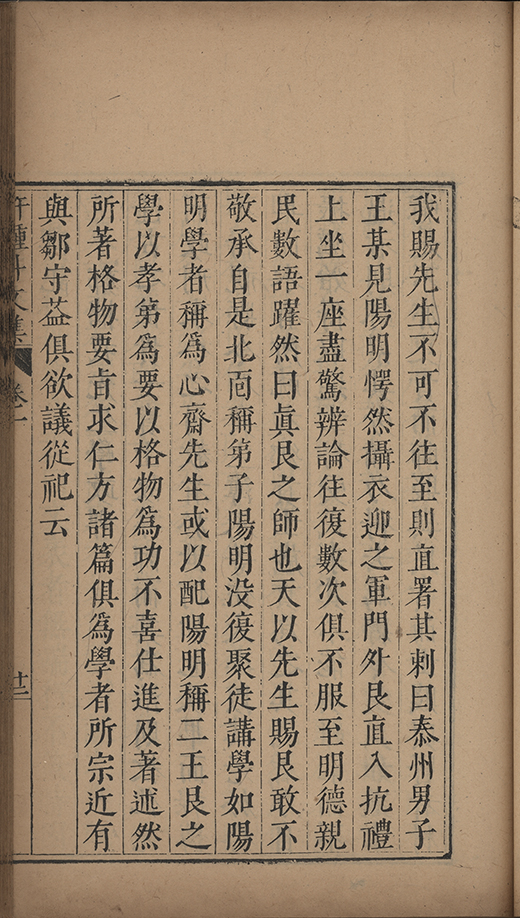 我賜先生不可不往至則直署其刺曰泰州男子
王某見陽明愕然攝衣迎之軍門外艮直入抗禮
上坐一座盡驚辨論往復數次俱不服至明德親
民數語躍然曰眞艮之師也天以先生賜艮敢不
敬承自是北面稱第子陽明没復聚徒講學如陽
明學者稱爲心齋先生或以配陽明稱二王艮之
學以孝第爲要以格物爲功不喜仕進及著述然
所著格物要旨求仁方諸篇俱爲學者所宗近有
與鄒守益俱欲議從祀云
文集
卷
廿二